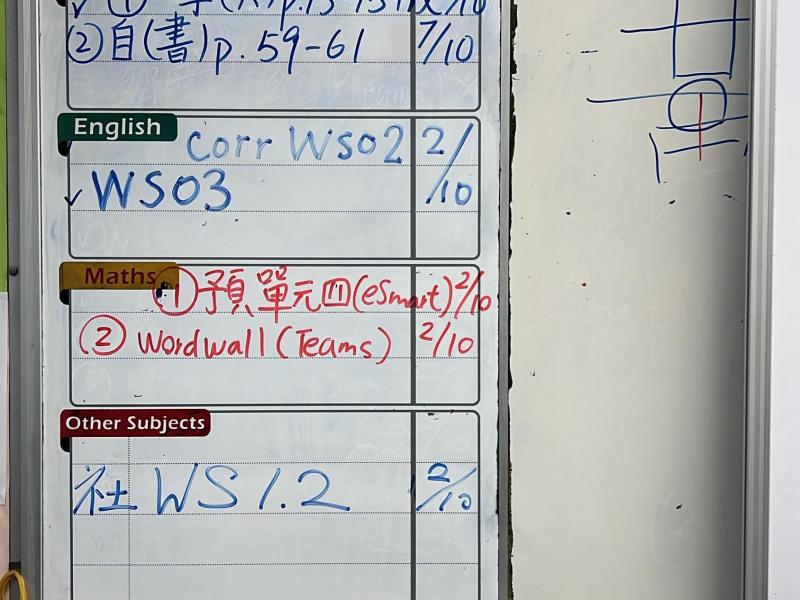 ② 自(書)p.59-61 7/10
English
corr WS02 2/10
✓ WS03
Maths
① 預單元四(eSmart) 2/10
② Wordwall (Teams) 2/10
Other Subjects
社 WS 1.2 2/10